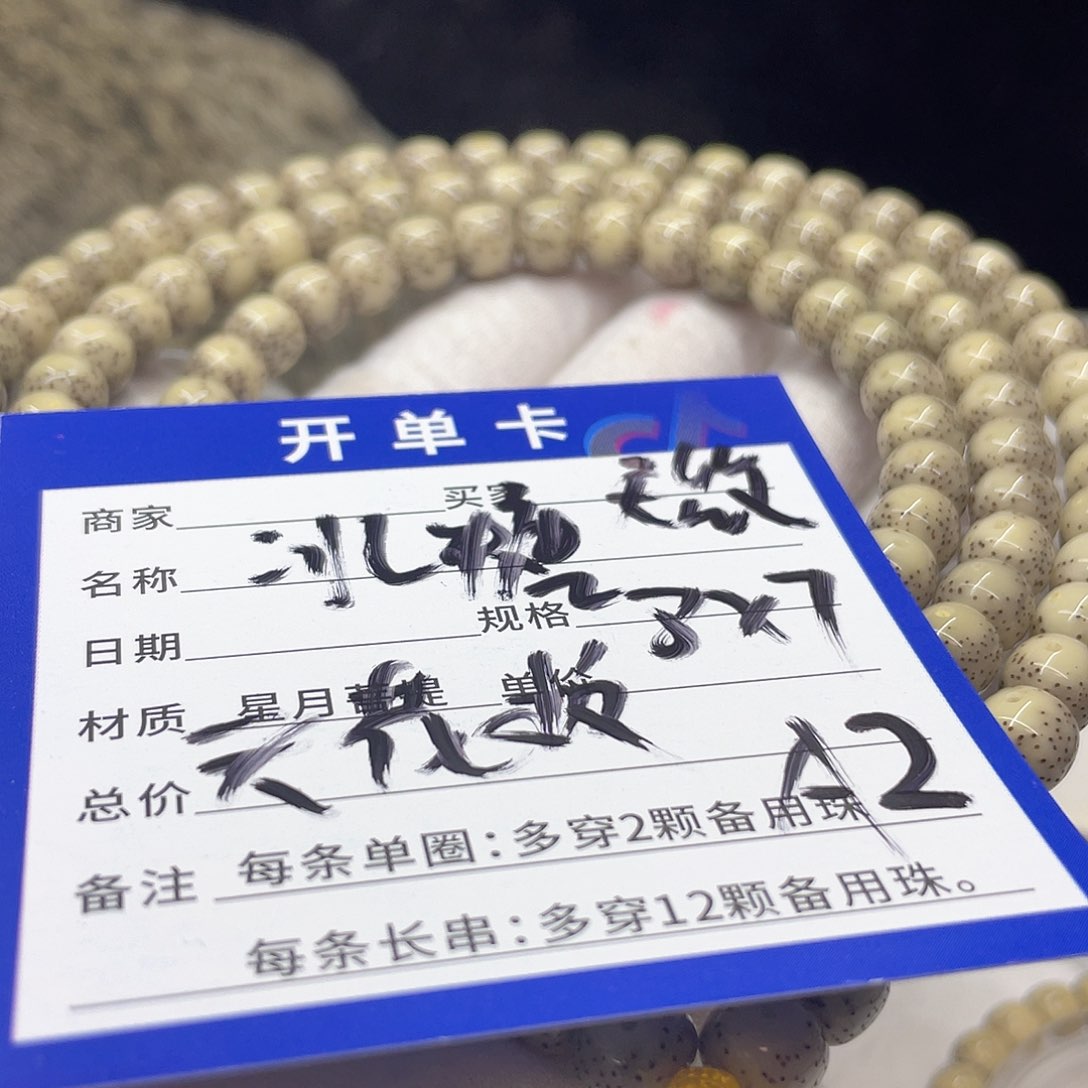 开单卡
商家 买家
名称 冰糖
日期 规格 8x7
材质 星月菩提 单
总价
A2
备注 每条单圈：多穿2颗备用珠
每条长串：多穿12颗备用珠。